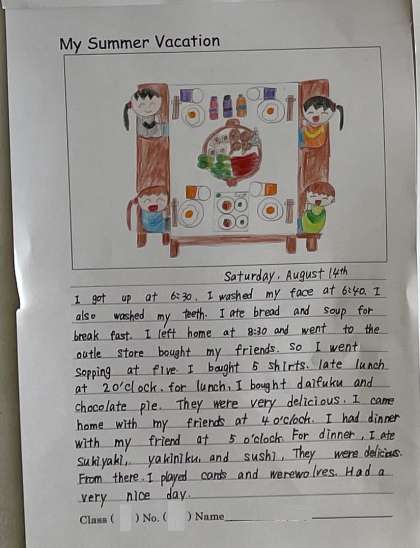 My Summer Vacation
Saturday, August 14th
I got up at 6:30. I washed my face at 6:40. I
also washed my teeth. I ate bread and soup for
break fast. I left home at 8:30 and went to the
outle store bought my friends. So I went
sopping at five. I bought 5 shirts. late lunch
at 2o'clock. for lunch, I bought daifuku and
chocolate pie. They were very delicious. I came
home with my friends at 4 o'clock. I had dinner
with my friend at 5 o'clock. For dinner, I ate
Sukiyaki, yakiniku, and sushi. They were delicious.
From there. I played cards and werewolves. Had a
very nice day.
Class ( ) No. ( ) Name